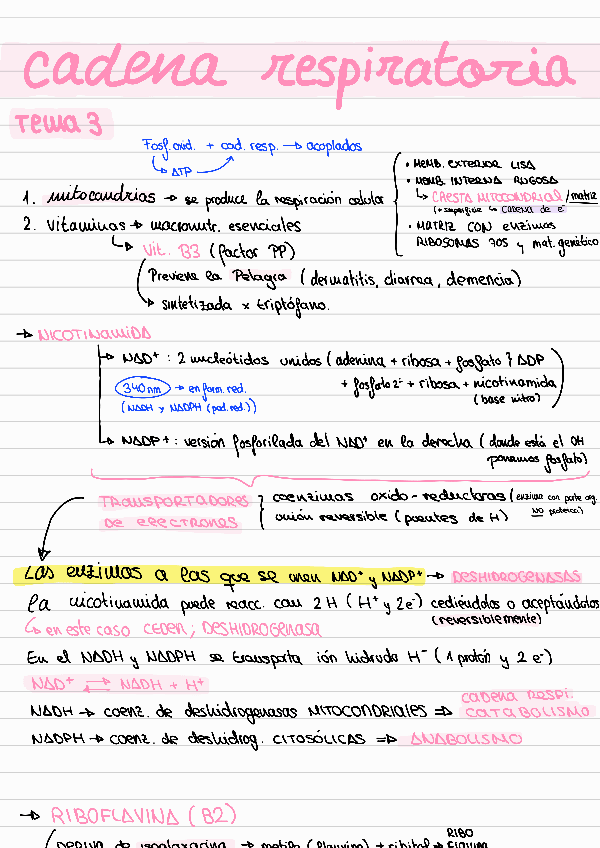 cadena respiratoria
Tema 3
Fosf. oxid. + cad. resp. → acoplados
↳ ATP
• MEMB. EXTERIOR LISA
• MEMB. INTERNA RUGOSA
↳ CRESTA MITOCONDRIAL / matriz
(+ superficie ↳ CADENA de e⁻
• MATRIZ CON enzimas
RIBOSOMAS 70S y mat. genético
1. mitocondrias → se produce la respiración celular
2. Vitaminas → macronutr. esenciales
↳ Vit. B3 (factor PP)
Previene la Pelagra (dermatitis, diarrea, demencia)
↳ sintetizada x triptófano.
→ NICOTINAMIDA
→ NAD⁺ : 2 nucleótidos unidos (adenina + ribosa + fosfato } ADP
340nm → en form. red.
+ fosfato 2⁻ + ribosa + nicotinamida
(NADH y NADPH (pod. red.))
(base nitro)
→ NADP⁺ : versión fosforilada del NAD⁺ en la derecha (donde está el OH
ponemos fosfato)
TRANSPORTADORES
DE ELECTRONES
coenzimas oxido-reductoras (enzima con parte org.
NO proteica)
unión reversible (puentes de H)
Las enzimas a las que se unen NAD⁺ y NADP⁺ → DESHIDROGENASAS
la nicotinamida puede reacc. con 2H (H⁺ y 2e⁻) cediéndolos o aceptándolos
(reversiblemente)
↳ en este caso CEDEN; DESHIDROGENASA
En el NADH y NADPH se transporta ión hidruro H⁻ (1 protón y 2 e⁻)
NAD⁺ ⇄ NADH + H⁺
NADH → coenz. de deshidrogenasas MITOCONDRIALES ⇒ cadena RESPI.
CATABOLISMO
NADPH → coenz. de deshidrog. CITOSÓLICAS ⇒ ANABOLISMO
→ RIBOFLAVINA (B2)
Deriva de isoaloxacina → metilo (flavina) + ribitol → RIBO
FLAVINA